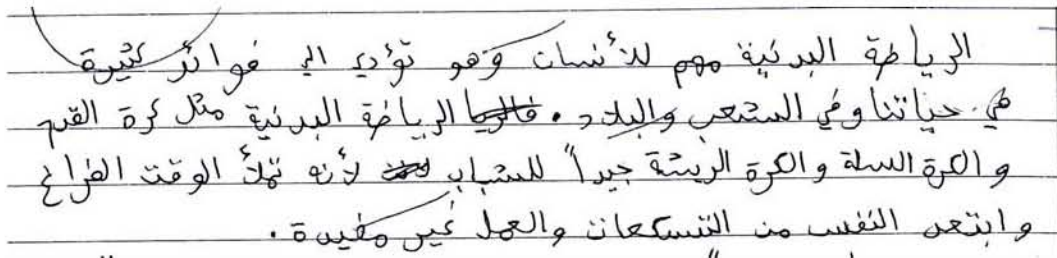 الرياضة البدنية مهم للأنسان وهو تؤدي الى فوائد كثيرة
في حياتنا وفي الشعب والبلاد. الرياضة البدنية مثل كرة القدم
والكرة السلة والكرة الريشة جيداً للشباب لأنه تملأ الوقت الفراغ
وابتعد النفس من التسكعات والعمل غير مفيدة.